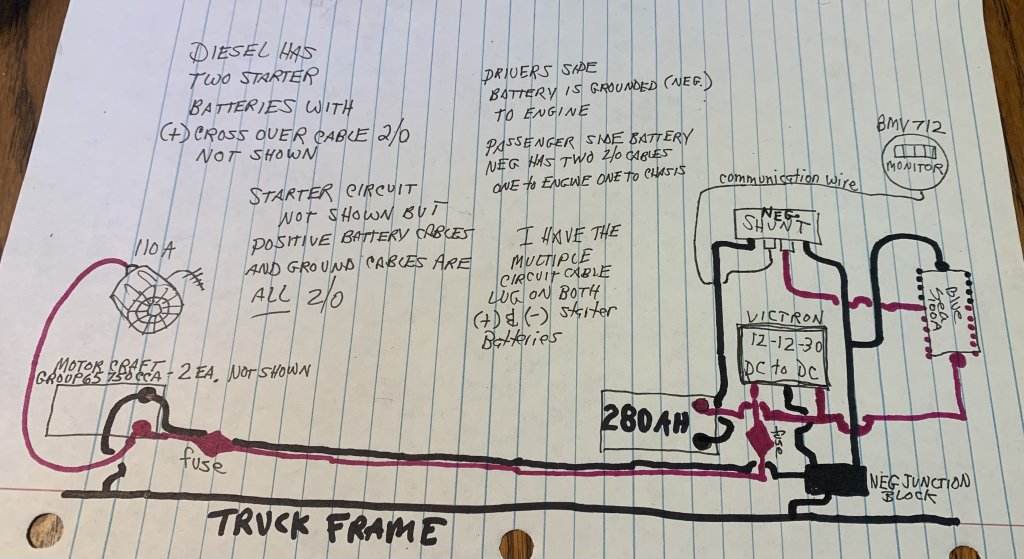 DIESEL HAS
TWO STARTER
BATTERIES WITH
(+) CROSS OVER CABLE 2/0
NOT SHOWN
STARTER CIRCUIT
NOT SHOWN BUT
POSITIVE BATTERY CABLES
AND GROUND CABLES ARE
ALL 2/0
DRIVERS SIDE
BATTERY IS GROUNDED (NEG.)
TO ENGINE
PASSENGER SIDE BATTERY
NEG HAS TWO 2/0 CABLES
ONE TO ENGINE ONE TO CHASIS
I HAVE THE
MULTIPLE
CIRCUIT CABLE
LUG ON BOTH
(+) & (-) Starter
Batteries
BMV 712
MONITOR
communication wire
NEG.
SHUNT
110A
Blue
Sea
100A
VICTRON
12-12-30
DC to DC
MOTOR CRAFT
GROUP 65 750 CCA - 2 EA. NOT SHOWN
280AH
fuse
fuse
NEG JUNCTION
BLOCK
TRUCK FRAME